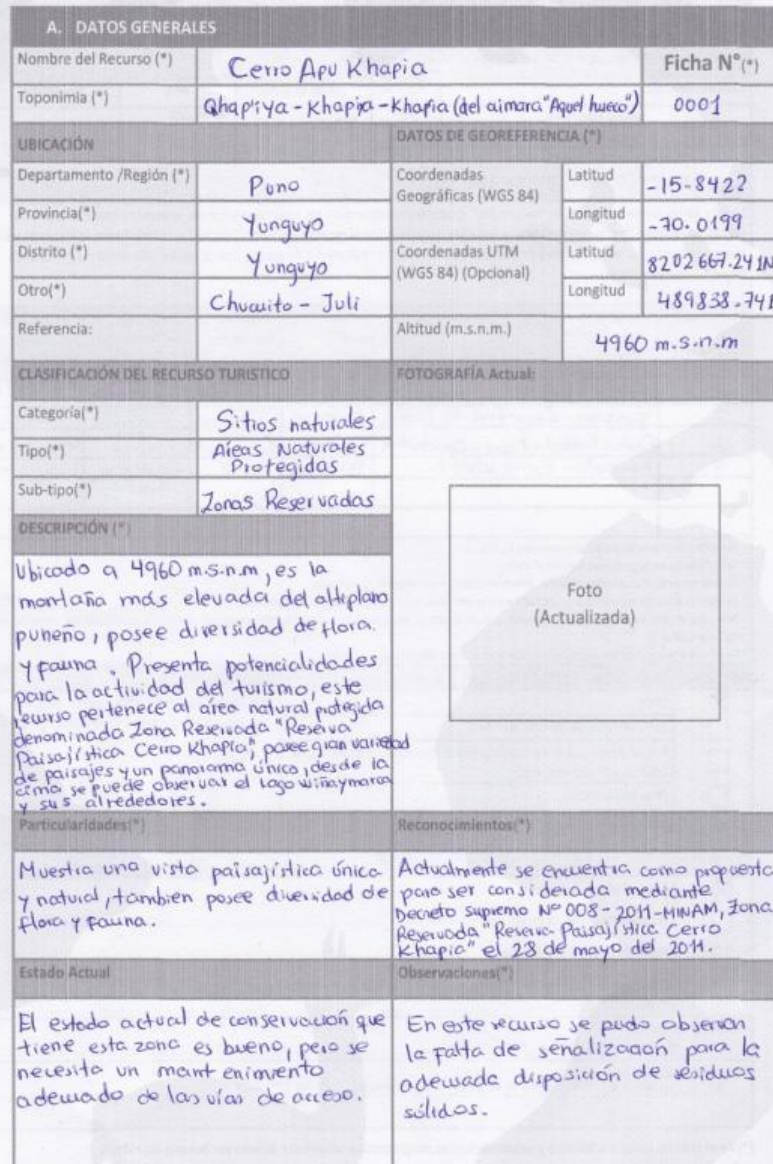 A. DATOS GENERALES
Nombre del Recurso (*) Cerro Apu Khapia Ficha N°(*)
Toponimia (*) Qhap'iya - Khapia - Khapia (del aimara "Aquel hueco") 0001
UBICACIÓN DATOS DE GEOREFERENCIA (*)
Departamento /Región (*) Puno Coordenadas Geográficas (WGS 84) Latitud -15-8422
Provincia(*) Yunguyo Longitud -70.0199
Distrito (*) Yunguyo Coordenadas UTM (WGS 84) (Opcional) Latitud 8202667.241N
Otro(*) Chucuito - Juli Longitud 489838.741
Referencia: Altitud (m.s.n.m.) 4960 m.s.n.m
CLASIFICACIÓN DEL RECURSO TURISTICO FOTOGRAFÍA Actual:
Categoría(*) Sitios naturales
Tipo(*) Aíeas Naturales
Protegidas
Sub-tipo(*) Zonas Reservadas
DESCRIPCIÓN (*)
Ubicado a 4960 m.s.n.m, es la
montaña más elevada del altiplano
puneño, posee diversidad de flora.
y fauna. Presenta potencialidades
para la actividad del turismo, este
recurso pertenece al área natural protegida
denominada Zona Reservada "Reserva
Paisajística Cerro Khapia", posee gran variedad
de paisajes y un panorama único, desde la
cima se puede observar el lago wiñaymarca
y sus alrededores.
Foto
(Actualizada)
Particularidades(*)
Muestra una vista paisajística única
y natural, tambien posee diversidad de
flora y fauna.
Reconocimientos(*)
Actualmente se encuentra como propuesta
para ser considerada mediante
Decreto Supremo N° 008-2011-MINAM, Zona
Reservada "Reserva Paisajística Cerro
Khapia" el 28 de mayo del 2011.
Estado Actual
El estado actual de conservación que
tiene esta zona es bueno, pero se
necesita un mantenimiento
adecuado de las vías de acceso.
Observaciones(*)
En este recurso se pudo observar
la falta de señalización para la
adecuada disposición de residuos
sólidos.